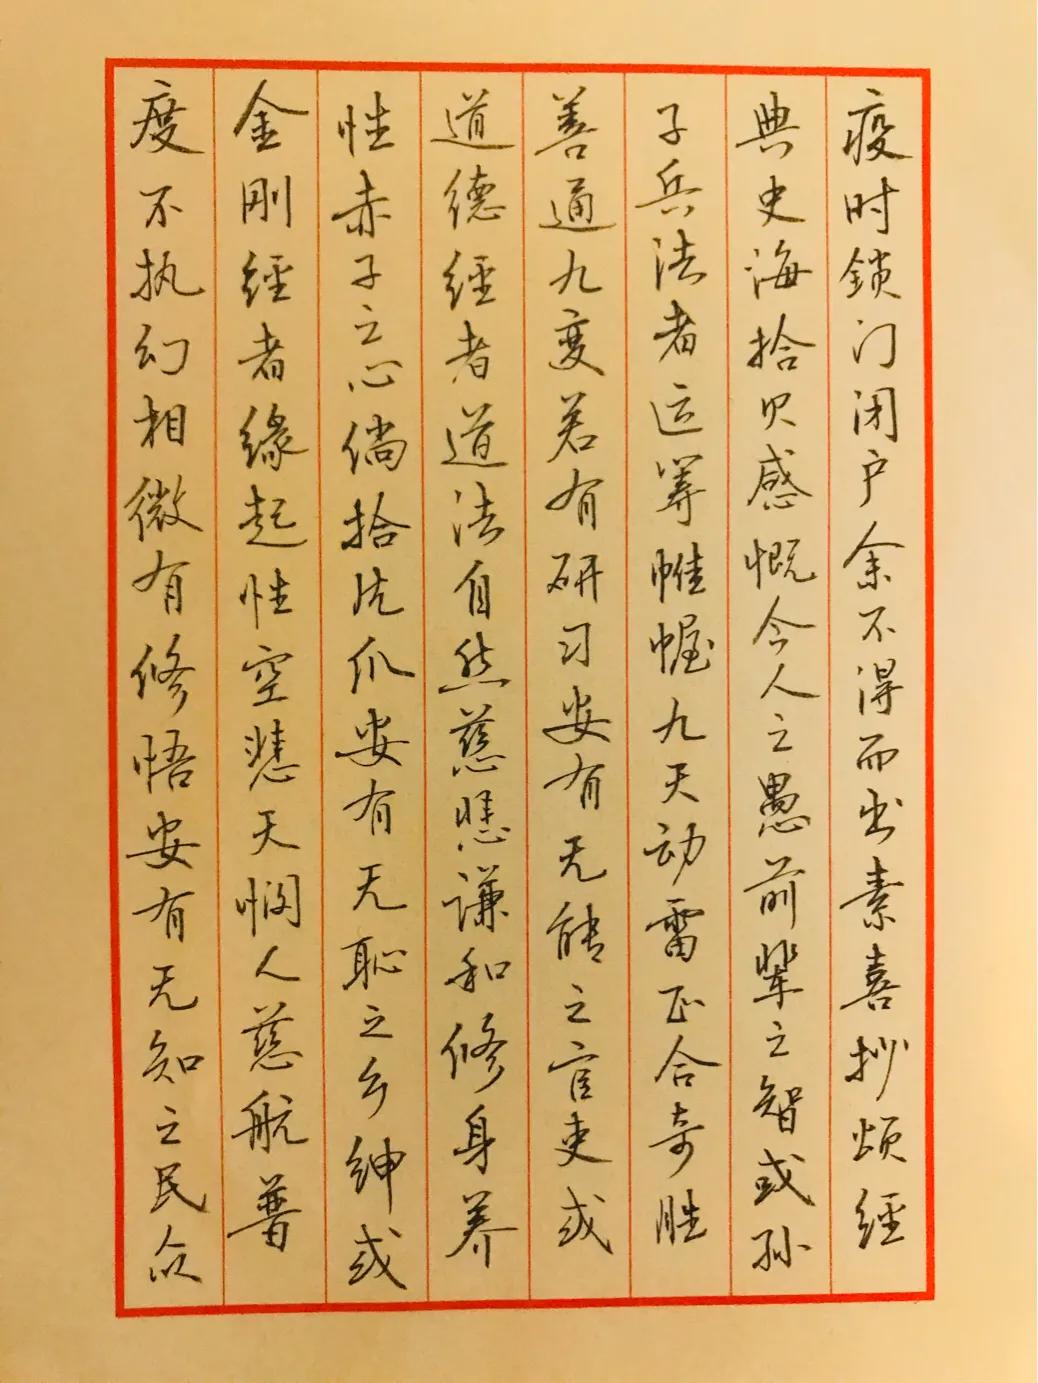 疫时鎖门闭户余不得而出素喜抄颂經
典史海拾贝感慨今人之愚前辈之智或孙
子兵法者运筹帷幄九天动雷正合奇胜
善通九变若有研习安有无能之官吏或
道德經者道法自然慈悲谦和修身养
性赤子之心倘拾片爪安有无恥之乡绅或
金刚經者缘起性空悲天悯人慈航普
度不执幻相微有修悟安有无知之民众